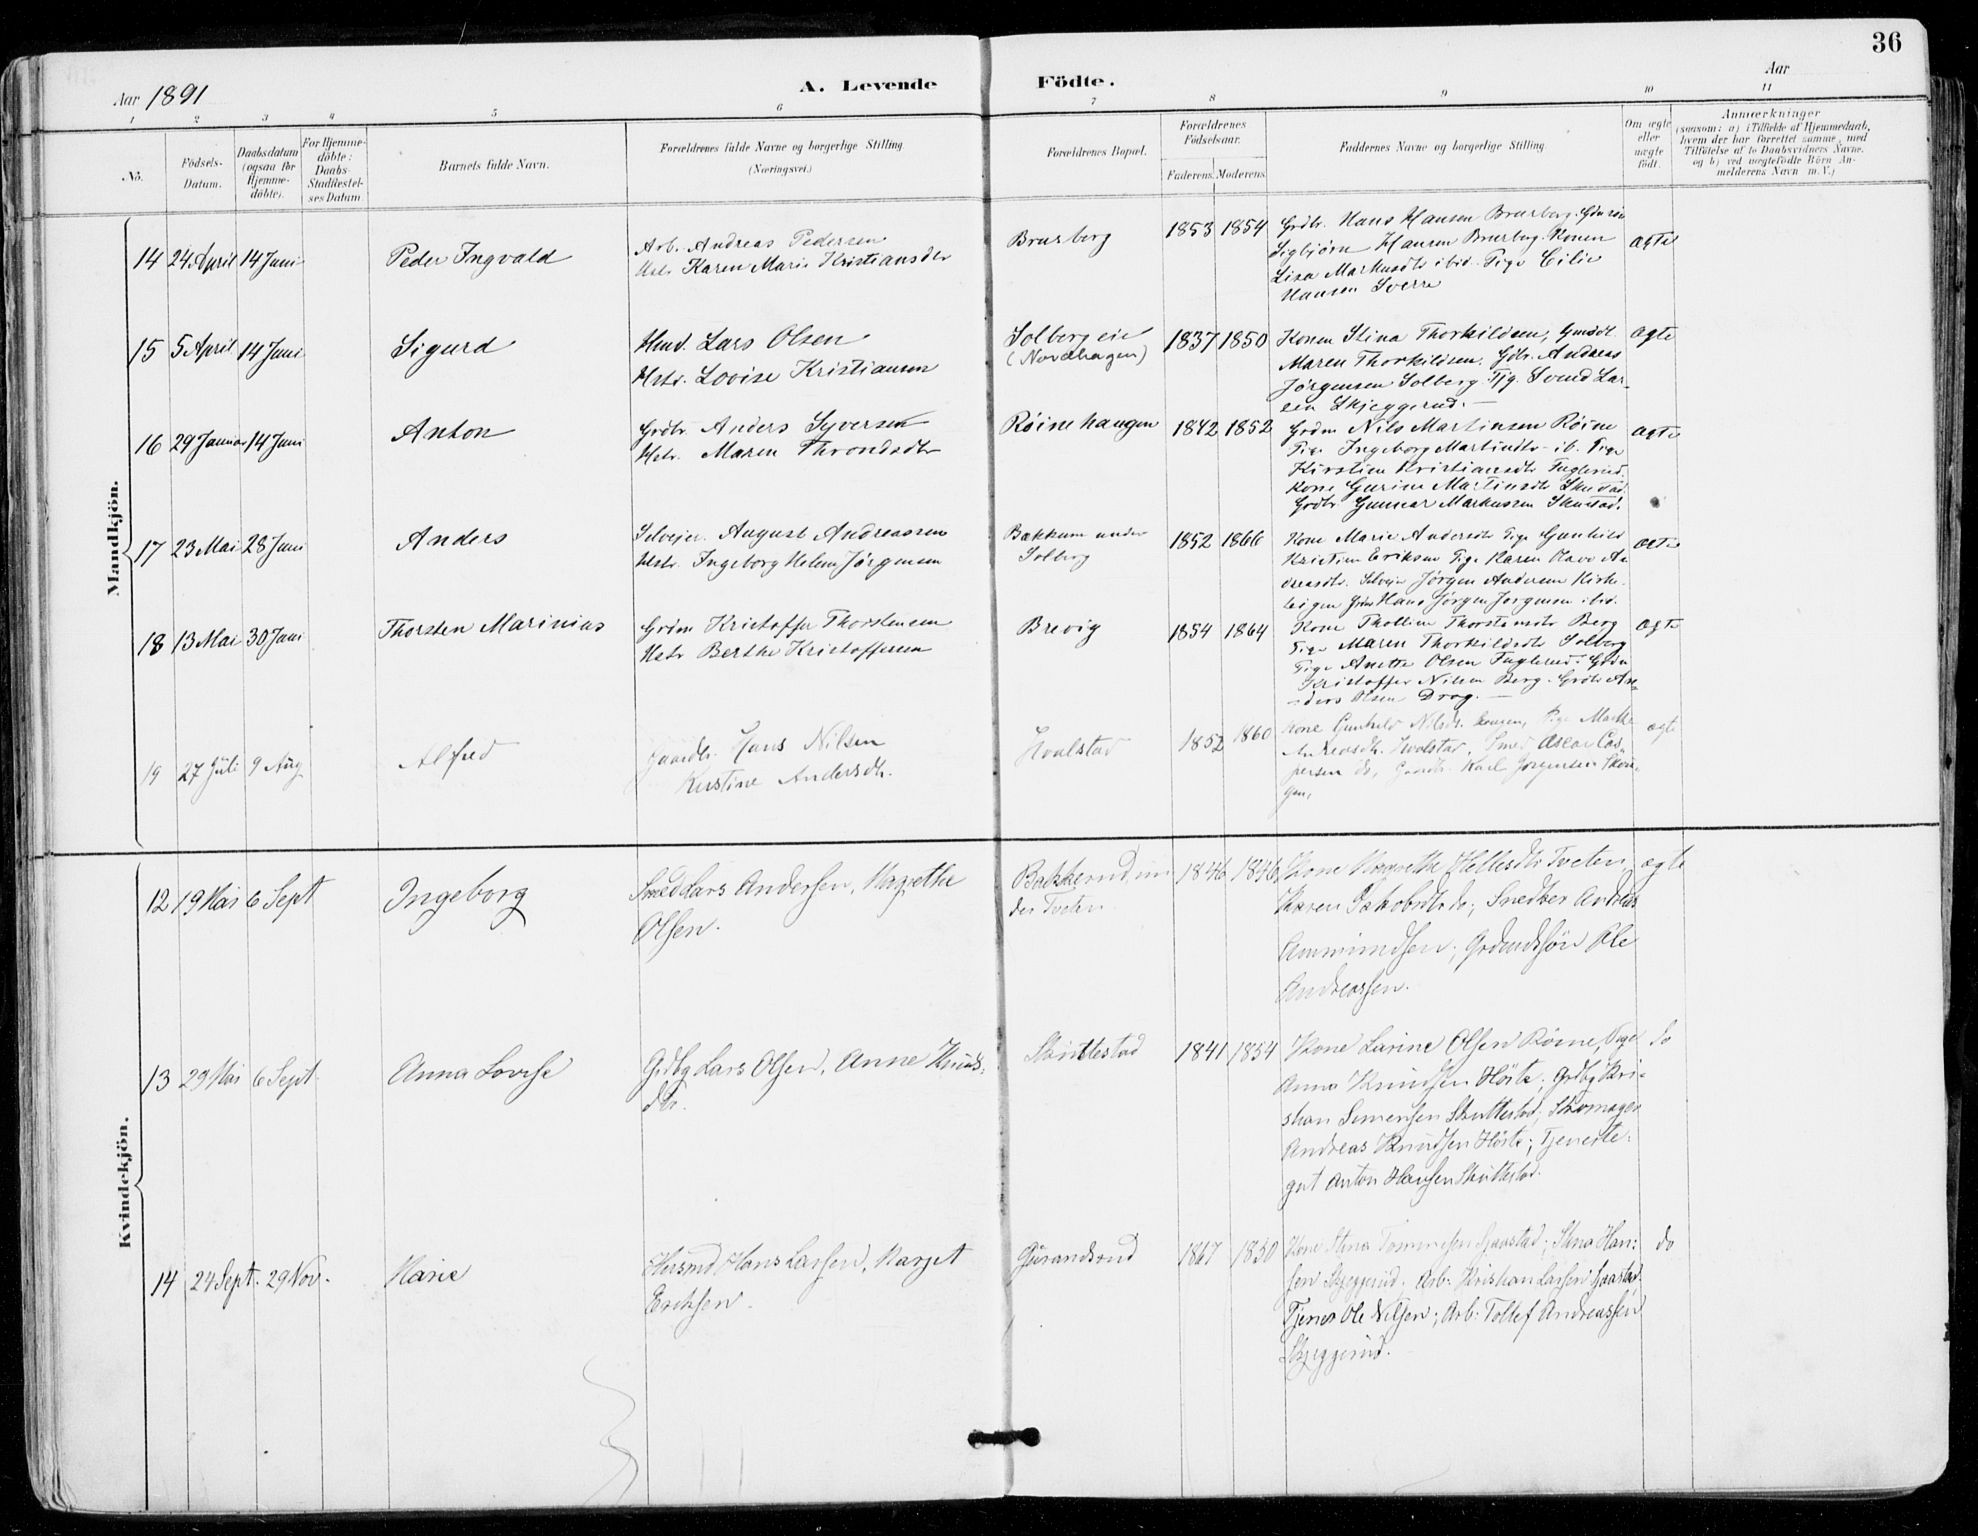 36
Aar 1891
A. Levende Födte.
Aar
1 2 3 4 5 6 7 8 9 10 11
No.
Födsels-Datum.
Daabsdatum (ogsaa for Hjemme-döbte).
For Hjemme-döbte: Daabs-Stadfæstel-ses Datum
Barnets fulde Navn.
Forældrenes fulde Navne og borgerlige Stilling (Næringsvei.)
Forældrenes Bopæl.
Forældrenes Födselsaar.
Faderens. Moderens.
Faddernes Navne og borgerlige Stilling.
Om ægte eller uægte födt.
Anmærkninger
(saasom: a) i Tilfælde af Hjemmedaab,
hvem der har forrettet samme, med
Tilföielse af to Daabsvidners Navne.
og b) ved uægtefödte Börn An-
melderens Navn m. V.)
Mandkjön.
14 24 April 14 Juni Peder Ingvald
Arb. Andreas Pedersen
Hstr. Karen Marie Kristiansdtr
Brusberg 1853 1854
Grdbr. Hans Hansen Brusberg. Gdmsön
Sigbjörn Hansen Brusberg. Konen
Lisa Markusdtr ibid. Pige Cilie
Hansen Sverre
ægte
15 5 April 14 Juni Sigurd
Hmd. Lars Olsen
Hstr. Lovise Kristiansen
Solberg eie
(Nordhagen)
1837 1850
Konen Stina Thorkildsen,
Maren Thorkildsen. Gdbr. Andreas
Jörgensen Solberg. Tjg. Svend Lar-
sen Skjeggerud.
ægte
16 29 Januar 14 Juni Anton
Grdbr Anders Syversen
Hstr. Maren Throndsdtr
Röinehaugen 1842 1852
Grdm Nils Martinsen Röine
Pige Ingeborg Martinsdtr ib. Pige
Kirstine Kristiansdtr Fuglerud.
Kone Gurine Martinsdtr
Grdbr Gunnar Markussen
ægte
17 23 Mai 28 Juni Anders
Selveier August Andreassen
Hstr. Ingeborg Helene Jörgensen
Bakkum under
Solberg
1852 1866
Kone Marie Andersdtr Pige Gunhild
Kristine Eriksen Pige Karen An-
dreasdtr. Selveier Jörgen Andersen Kirke-
Hans Jörgen Jörgensen ibid.
ægte
18 13 Mai 30 Juni Thorsten Marinius
Grdm Kristoffer Thorstensen
Hstr Berthe Kristoffersen
Brevig 1854 1864
Kone Thorstensdtr Berg
Pige Maren Thorkildsdtr Solberg
Pige Anette Olsen Fuglerud. Grdm
Kristoffer Nilsen Berg. Grdbr An-
ders Olsen Drag.
ægte
19 27 Juli 9 Aug Alfred
Gaardbr. Hans Nilsen
Kirstine Andersdtr.
Hvalstad 1852 1860
Kone Gunhild Nilsdtr. Pige
Andreasdtr. Hvalstad. Smed Oscar Cas-
persen do, Gaardbr. Karl Jörgensen Skou-
gen,
ægte
Kvindekjön.
12 19 Mai 6 Sept Ingeborg
Smed Lars Andersen, Magrethe
Olsen.
Bakkerud un
der Tveten
1846 1846
Kone Magrethe Tveten,
Karen Jakobsdtr do; Snedker Andreas
Ammundsen; Grdmdssön Ole
Andreassen.
ægte
13 29 Mai 6 Sept Anna Lovise
Grdbg Lars Olsen, Anne Knuds-
dtr.
Skuttestad 1841 1854
Kone Larine Olsen Röine, Pige
Anna Knudsen Hörte; Grdbg Kri-
stian Simensen Skuttestad; Skomager
Andreas Knudsen Hörte; Tjeneste-
gut Anton Hansen Skuttestad.
do
14 24 Sept. 29 Nov. Marie
Husmd Hans Larsen, Marget
Eriksen.
Gurandsrud 1847 1850
Kone Stina Tommesen Sjaastad; Stina Han-
sen Skjeggerud; Arb. Kristian Larsen Sjaastad
Tjener Ole Nilsen; Arb. Tollef Andreassen
Skjeggerud.
do